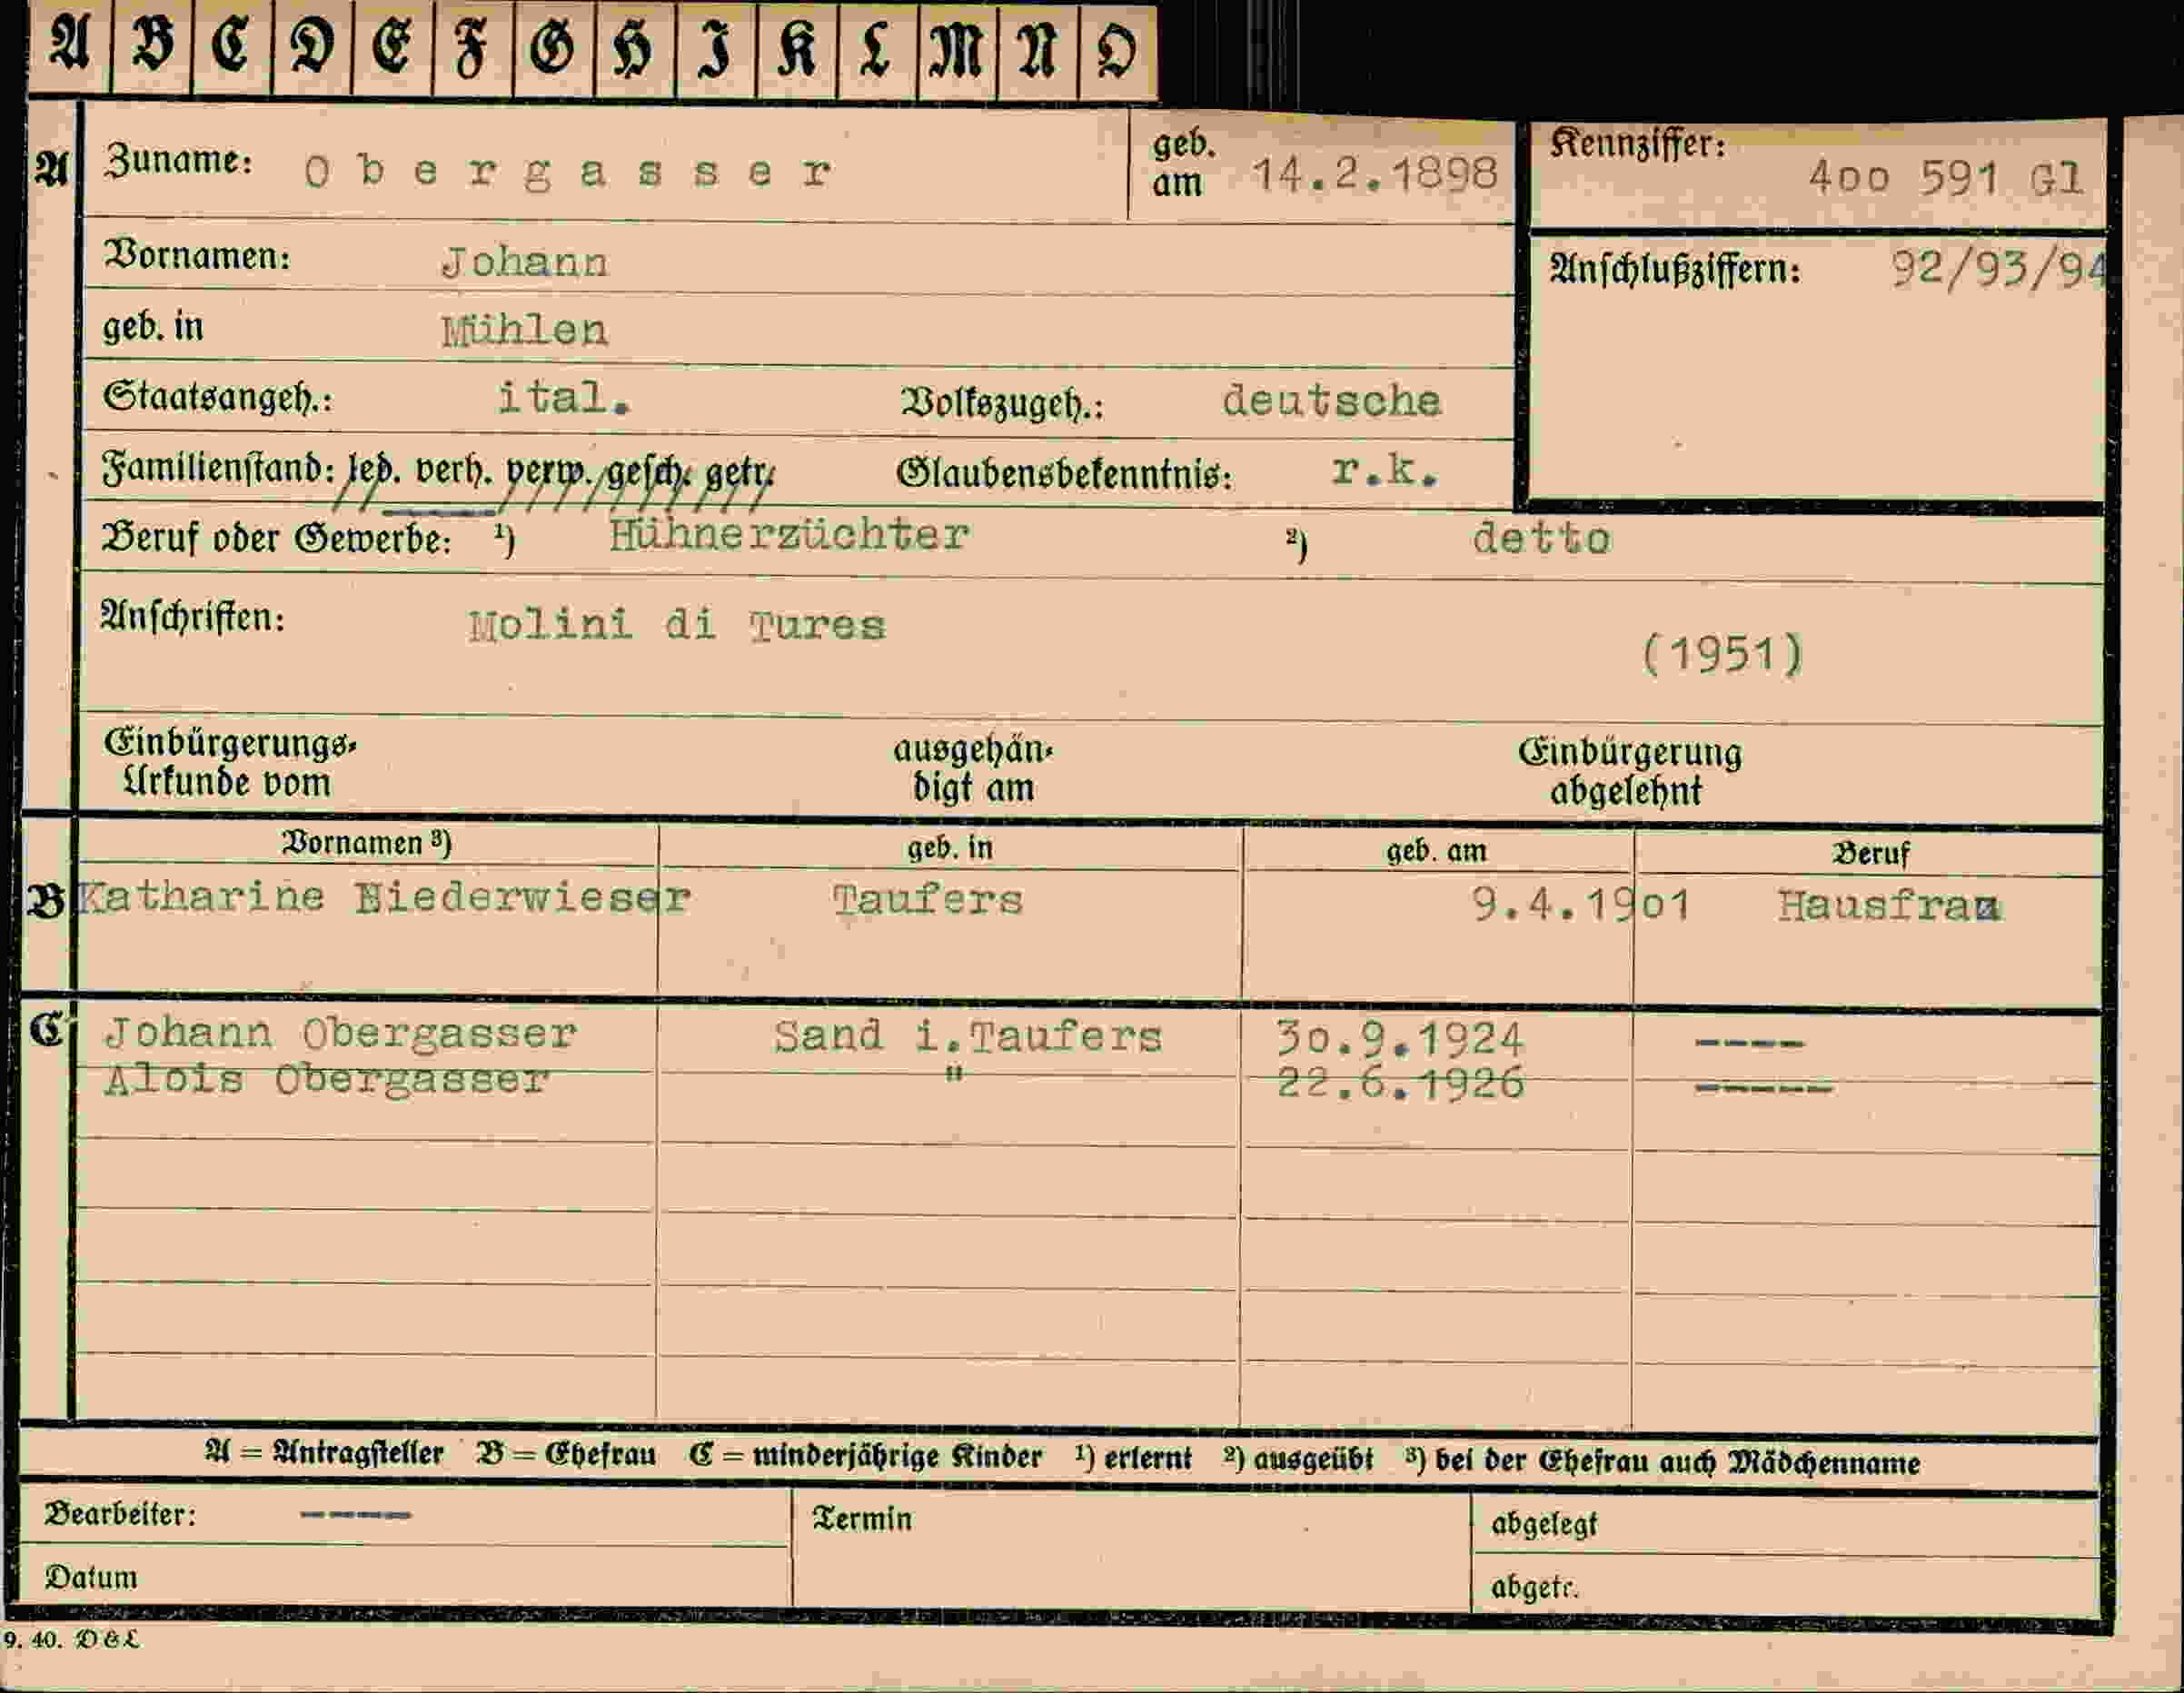 A B C D E F G H I K L M N O
A Zuname: Obergasser geb. am 14.2.1898 Kennziffer: 4oo 591 Gl
Vornamen: Johann Anschlußziffern: 92/93/94
geb. in Mühlen
Staatsangeh.: ital. Volkszugeh.: deutsche
Familienstand: led. verh. verw. gesch. getr. Glaubensbekenntnis: r.k.
Beruf oder Gewerbe: ¹) Hühnerzüchter ²) detto
Anschriften: Molini di Tures
(1951)
Einbürgerungs- ausgehän- Einbürgerung
Urkunde vom digt am abgelehnt
Vornamen ³) geb. in geb. am Beruf
B Katharine Niederwieser Taufers 9.4.19o1 Hausfrau
C Johann Obergasser Sand i.Taufers 3o.9.1924 ----
Alois Obergasser " 22.6.1926 -----
A = Antragsteller B = Ehefrau C = minderjährige Kinder ¹) erlernt ²) ausgeübt ³) bei der Ehefrau auch Mädchenname
Bearbeiter: ---- Termin abgelegt
Datum abgetr.
9. 40. D & L